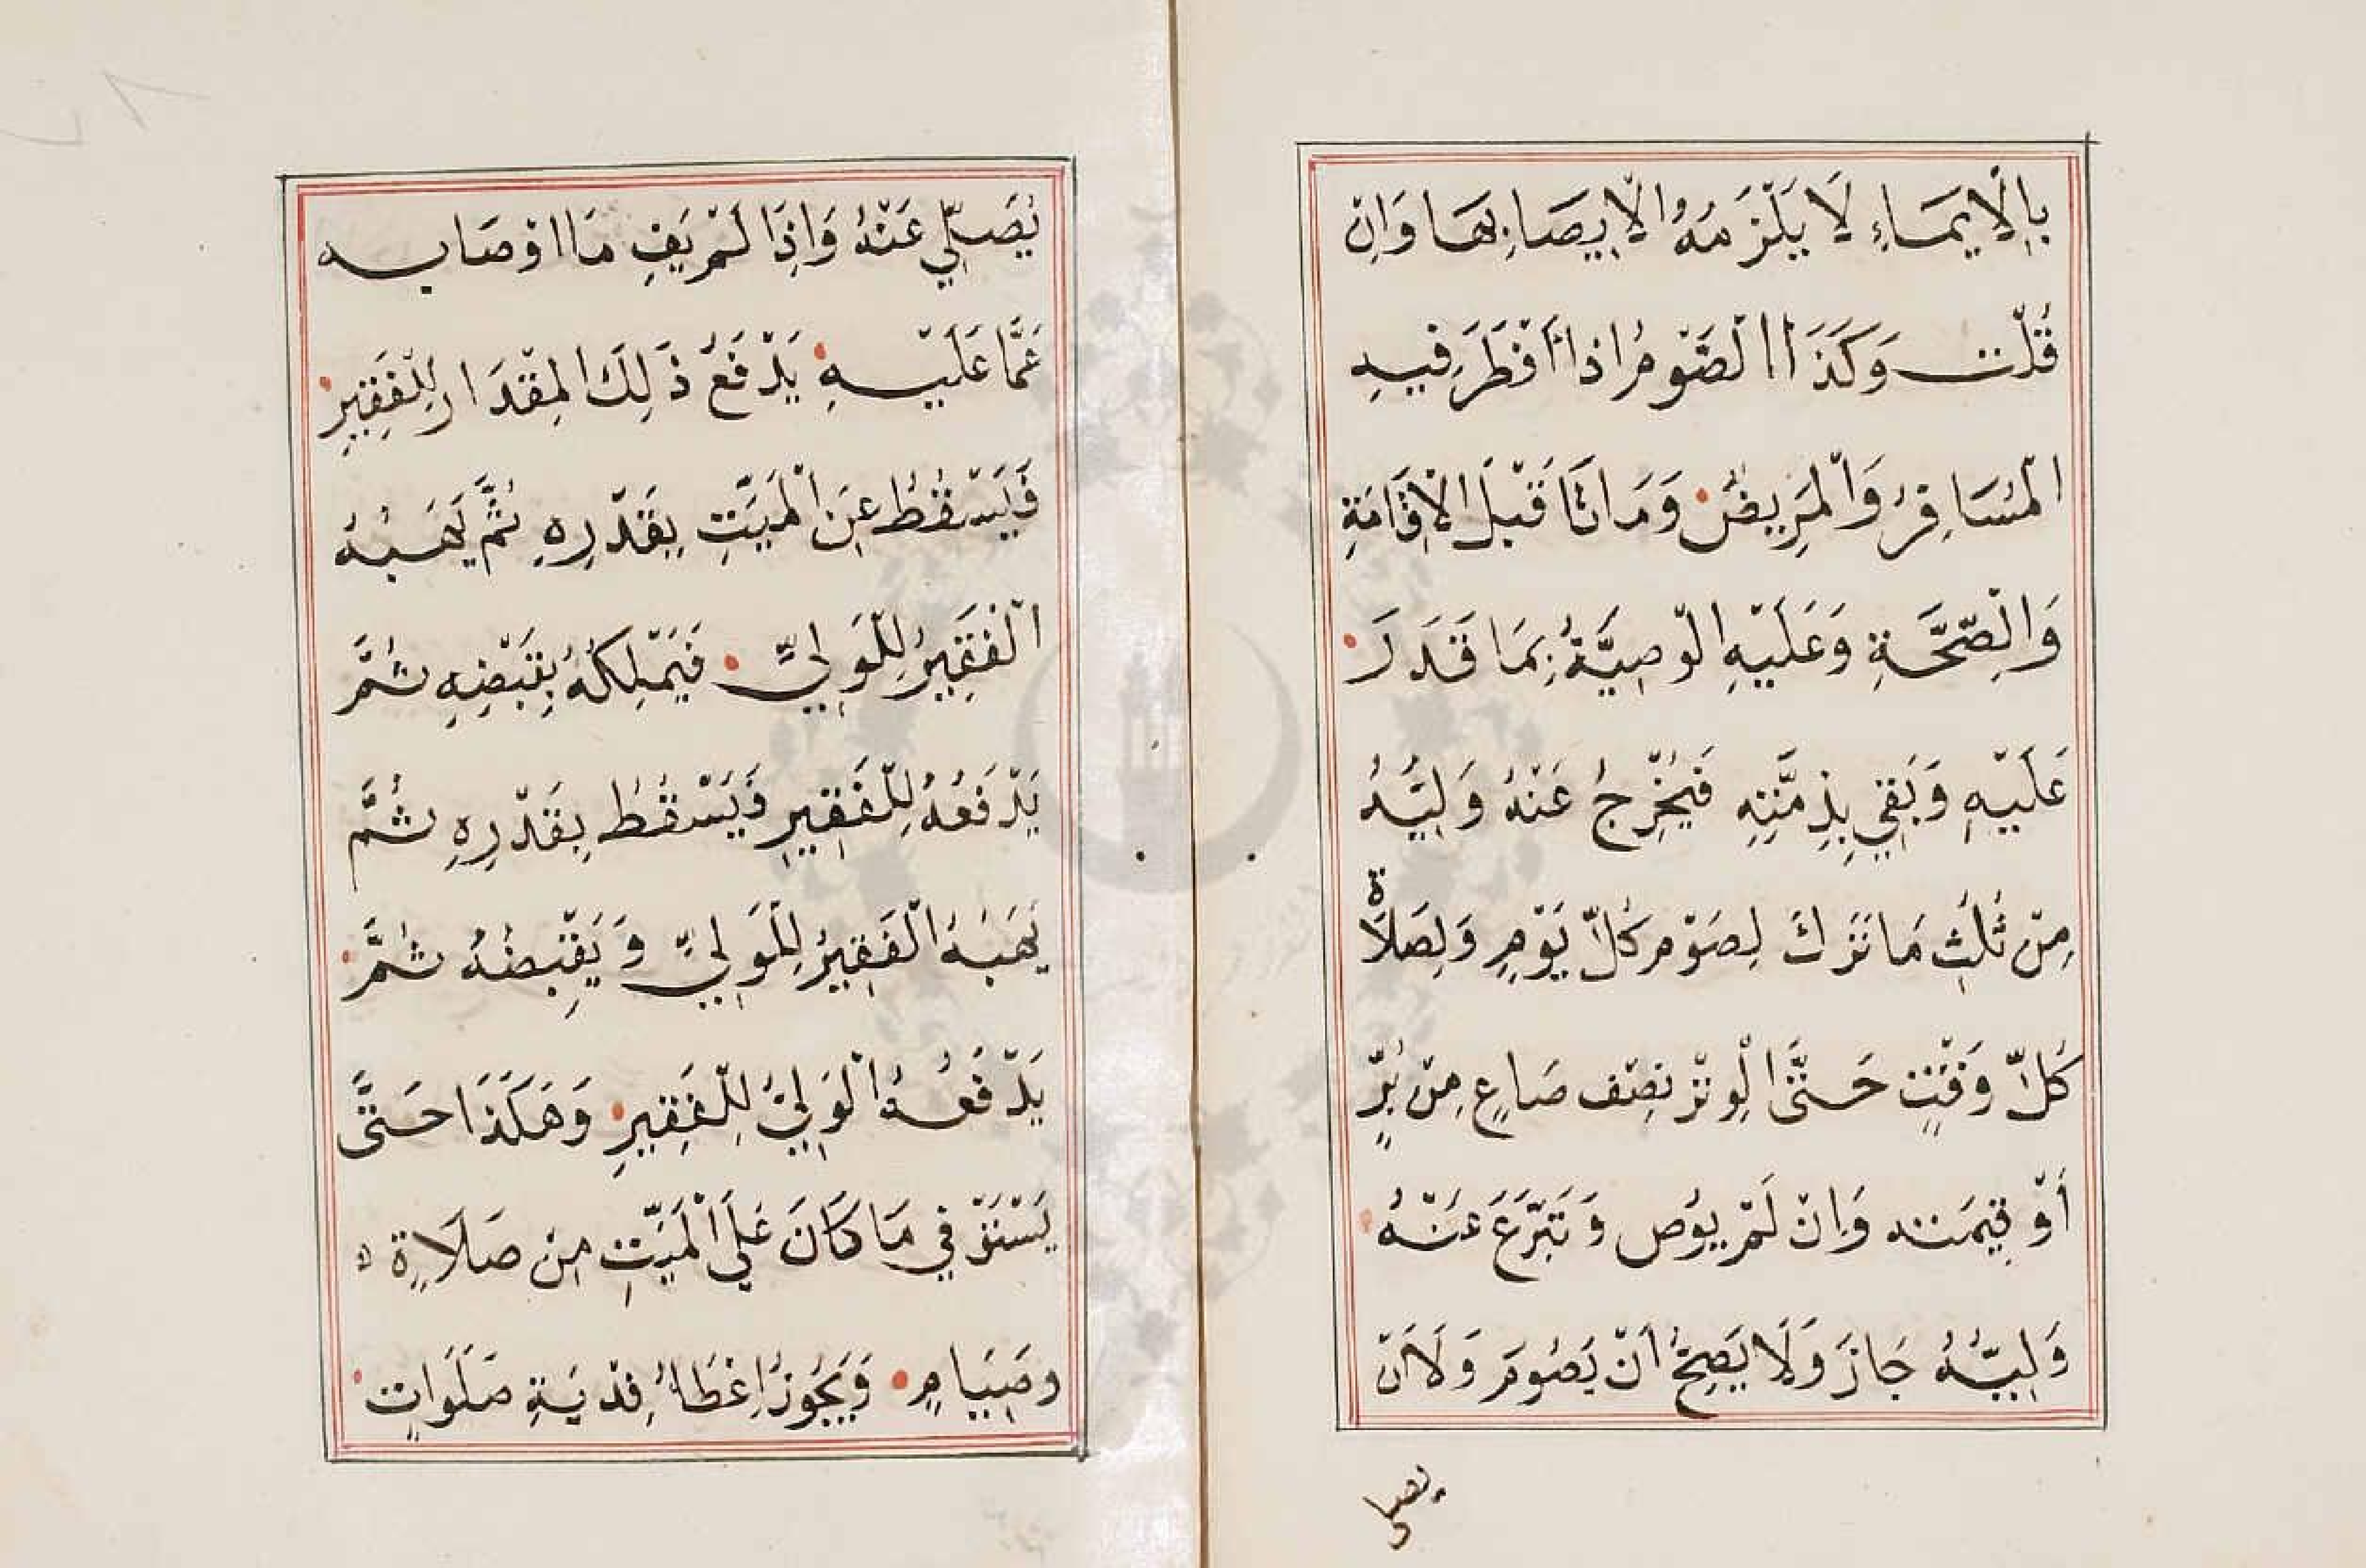 بِالْاِيمَاءِ لَا يَلْزَمُهُ الْاِيصَا بِهَا وَاِنْ
قُلْت وَكَذَا الصَّوْمُ اِذَا أَفْطَرَ فِيهِ
الْمُسَافِرُ وَالْمَرِيضُ وَمَاتَا قَبْلَ الْاِقَامَةِ
وَالْصِّحَّةِ وَعَلَيْهِ الْوَصِيَّةُ بِمَا قَدَرَ
عَلَيْهِ وَبَقِيَ بِذِمَّتِهِ فَيُخْرِجُ عَنْهُ وَلِيُّهُ
مِنْ ثُلُثِ مَا تَرَكَ لِصَوْمِ كُلِّ يَوْمٍ وَلِصَلَاةِ
كُلِّ وَقْتٍ حَتَّى الْوِتْر نِصْف صَاعٍ مِنْ بُرٍّ
أَوْ قِيمَته وَاِنْ لَمْ يُوصِ وَتَبَرَّعَ عَنْهُ
وَلِيُّهُ جَازَ وَلَا يَصِحُّ اَنْ يَصُومَ وَلَا اَنْ
يصلى
يُصَلِّي عَنْهُ وَاِذَا لَمْ يَفِ مَا اوْصَا بِه
عَمَّا عَلَيْهِ يَدْفَعُ ذَلِكَ الْمِقْدَار لِلْفَقِيرِ
فَيَسْقُطُ عَنِ الْمَيِّتِ بِقَدْرِهِ ثُمَّ يَهَبُهُ
الْفَقِيرُ لِلْوَلِيِّ فَيَمْلِكُهُ بِقَبْضِهِ ثُمَّ
يَدْفَعُهُ لِلْفَقِيرِ فَيَسْقُطُ بِقَدْرِهِ ثُمَّ
يَهَبُهُ الْفَقِيرُ لِلْوَلِيِّ وَيَقْبِضُهُ ثُمَّ
يَدْفَعُهُ الْوَلِيُّ لِلْفَقِيرِ وَهَكَذَا حَتَّى
يَسْتَوْفِي مَا كَانَ عَلَى الْمَيِّتِ مِنْ صَلَاةٍ
وصِيَامٍ وَيَجُوزُ اِعْطَاءُ فِدْيَةِ صَلَوَاتٍ